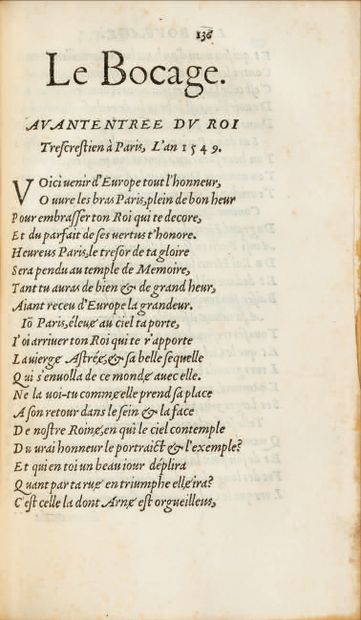 136
Le Bocage.
AVANTENTREE DV ROI
Trescrestien à Paris, L'an 1549.
VOici venir d'Europe tout l'honneur,
Ouure les bras Paris, plein de bon heur
Pour embrasser ton Roi qui te decore,
Et du parfait de ses vertus t'honore.
Heureus Paris, le tresor de ta gloire
Sera pendu au temple de Memoire,
Tant tu auras de bien & de grand heur,
Aiant receu d'Europe la grandeur.
Iô Paris, éleuę au ciel ta porte,
I'oi arriuer ton Roi qui te r'apporte
La vierge Astréę, & sa belle sequelle
Qui s'enuolla de ce mondę auec elle.
Ne la uoi-tu commę elle prend sa place
A son retour dans le sein & la face
De nostre Roinę, en qui le ciel contemple
Du urai honneur le portraict & l'exemple?
Et qui en toi un beau iour déplira
Quant par ta ruę en triumphe ellę ira?
C'est celle la dont Arnę est orgueilleus,